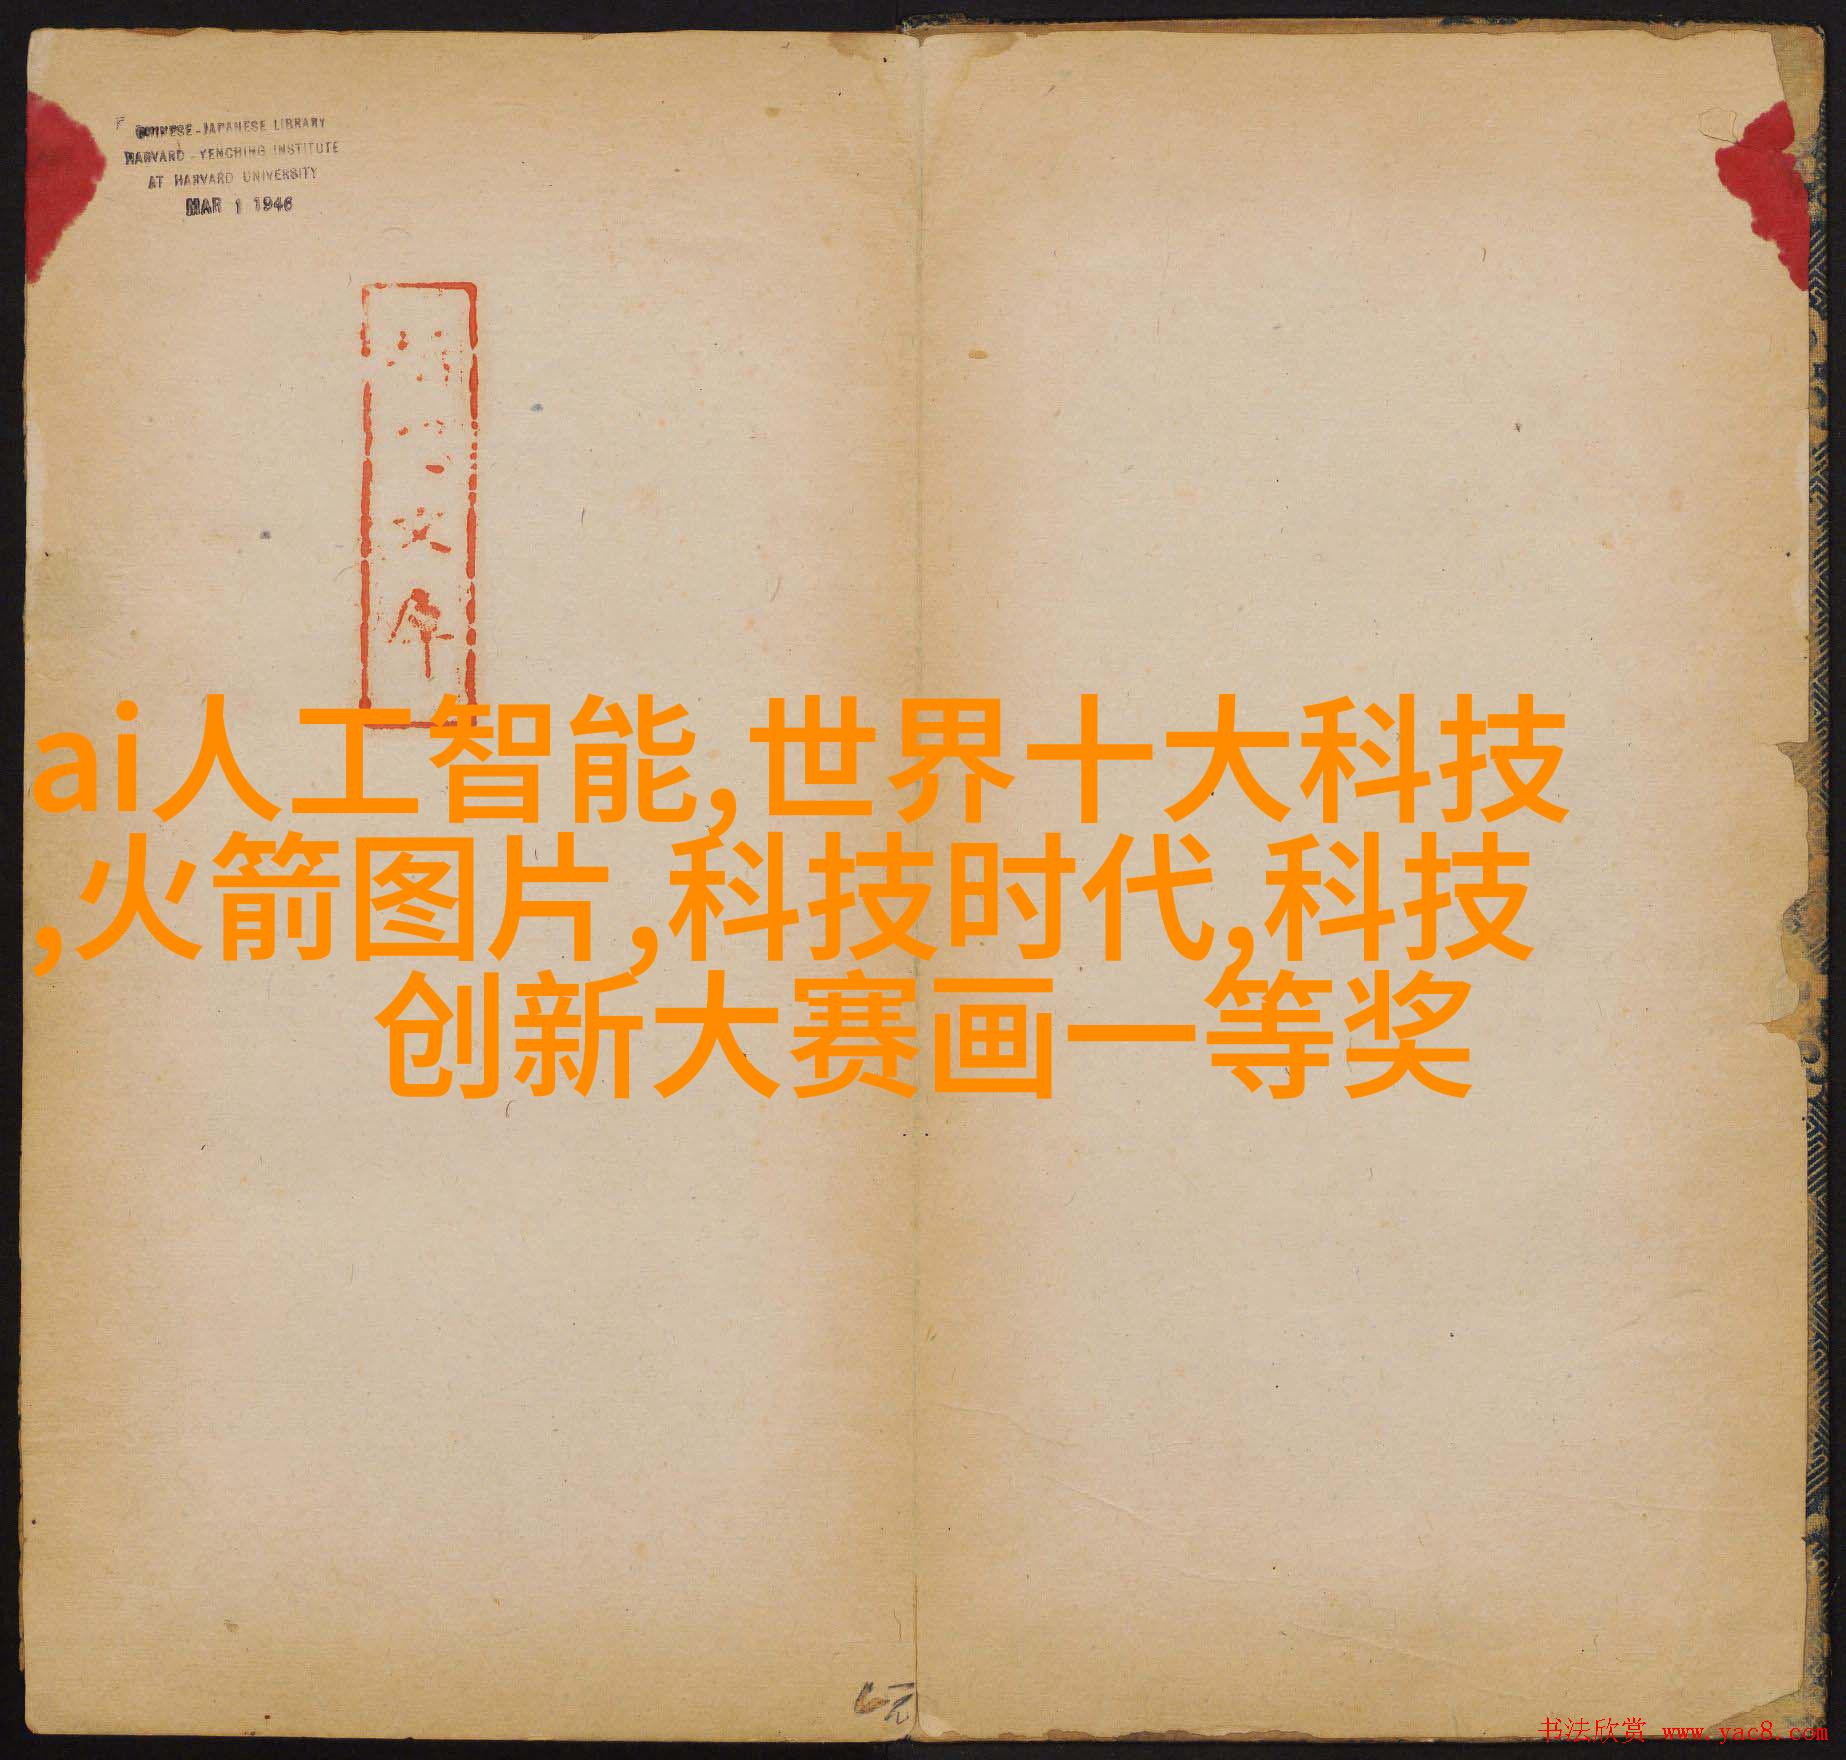 CHINESE-JAPANESE LIBRARY
HARVARD-YENCHING INSTITUTE
AT HARVARD UNIVERSITY
MAR 1 1946
ai人工智能,世界十大科技
,火箭图片,科技时代,科技
创新大赛画一等奖
元
书法欣赏 www.yac8.com